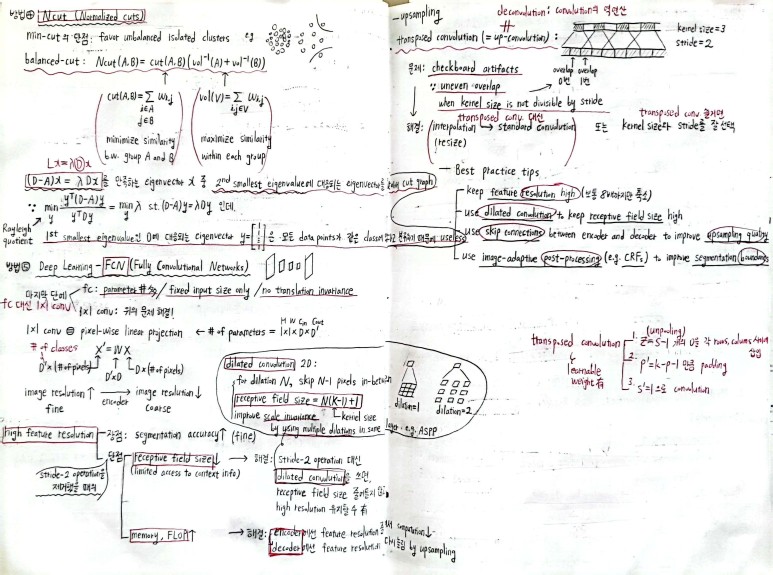 방법④ Ncut (Normalized cuts)
min-cut의 단점: favor unbalanced isolated clusters e.g.
balanced-cut: Ncut(A,B) = cut(A,B)(vol⁻¹(A)+vol⁻¹(B))
cut(A,B)=∑ Wi,j
i∈A
j∈B
minimize similarity
b.w. group A and B
vol(V)=∑ Wi,j
i,j∈V
maximize similarity
within each group
Lx=λDx
(D-A)x = λDx을 만족하는 eigenvector x 중 2nd smallest eigenvalue에 대응되는 eigenvector를 cut graph)
∵ min yᵀ(D-A)y / yᵀDy = min λ st. (D-A)y=λDy 인데,
y
Rayleigh
quotient
1st smallest eigenvalue인 0에 대응되는 eigenvector y= 은 모든 data points가 같은 class useless
방법⑤ Deep Learning - FCN (Fully Convolutional Networks)
마지막 단에 fc: parameter 수↑ / fixed input size only / no translation invariance
fc 대신 1x1 conv
1x1 conv: 위의 문제 해결!
1x1 conv ⊜ pixel-wise linear projection ← # of parameters = 1x1xDxD'
H W Cin Cout
# of classes
X' = W X
D'x(# of pixels) D'xD Dx(# of pixels)
image resolution↑ → image resolution↓
fine encoder coarse
dilated convolution 2D:
for dilation N, skip N-1 pixels in-between
receptive field size = N(K-1)+1
kernel size
improve scale invariance
by using multiple dilations in same layer e.g. ASPP
dilation=1 dilation=2
High feature resolution
장점: segmentation accuracy↑ (fine)
단점: receptive field size↓ → 해결: Stride-2 operation 대신
(limited access to context info)
dilated convolution을 쓰면,
receptive field size 줄어들지 않고
high resolution 유지할 수 有
stride-2 operation을
제거했을 때
memory, FLOP↑ → 해결: encoder에선 feature resolution computation↓
decoder에선 feature resolution 다시 늘림 by upsampling
- upsampling
deconvolution: convolution의 역연산
transposed convolution (= up-convolution):
kernel size=3
stride=2
overlap overlap
0번 1번
문제: checkboard artifacts
∵ uneven overlap
when kernel size is not divisible by stride
transposed conv. 대신
해결: interpolation → standard convolution
(resize)
transposed conv. 쓸거면
또는 kernel size와 stride를 잘 선택
Best practice tips
keep feature resolution high (보통 8배까지만 축소)
use dilated convolution to keep receptive field size high
use skip connections between encoder and decoder to improve upsampling quality
use image-adaptive post-processing (e.g. CRFs) to improve segmentation boundary
transposed convolution
learnable
weight 有
(unpooling)
1. z=s-1 개의 0을 각 rows, columns 사이에 삽입
2. p'=k-p-1 만큼 padding
3. s'=1으로 convolution